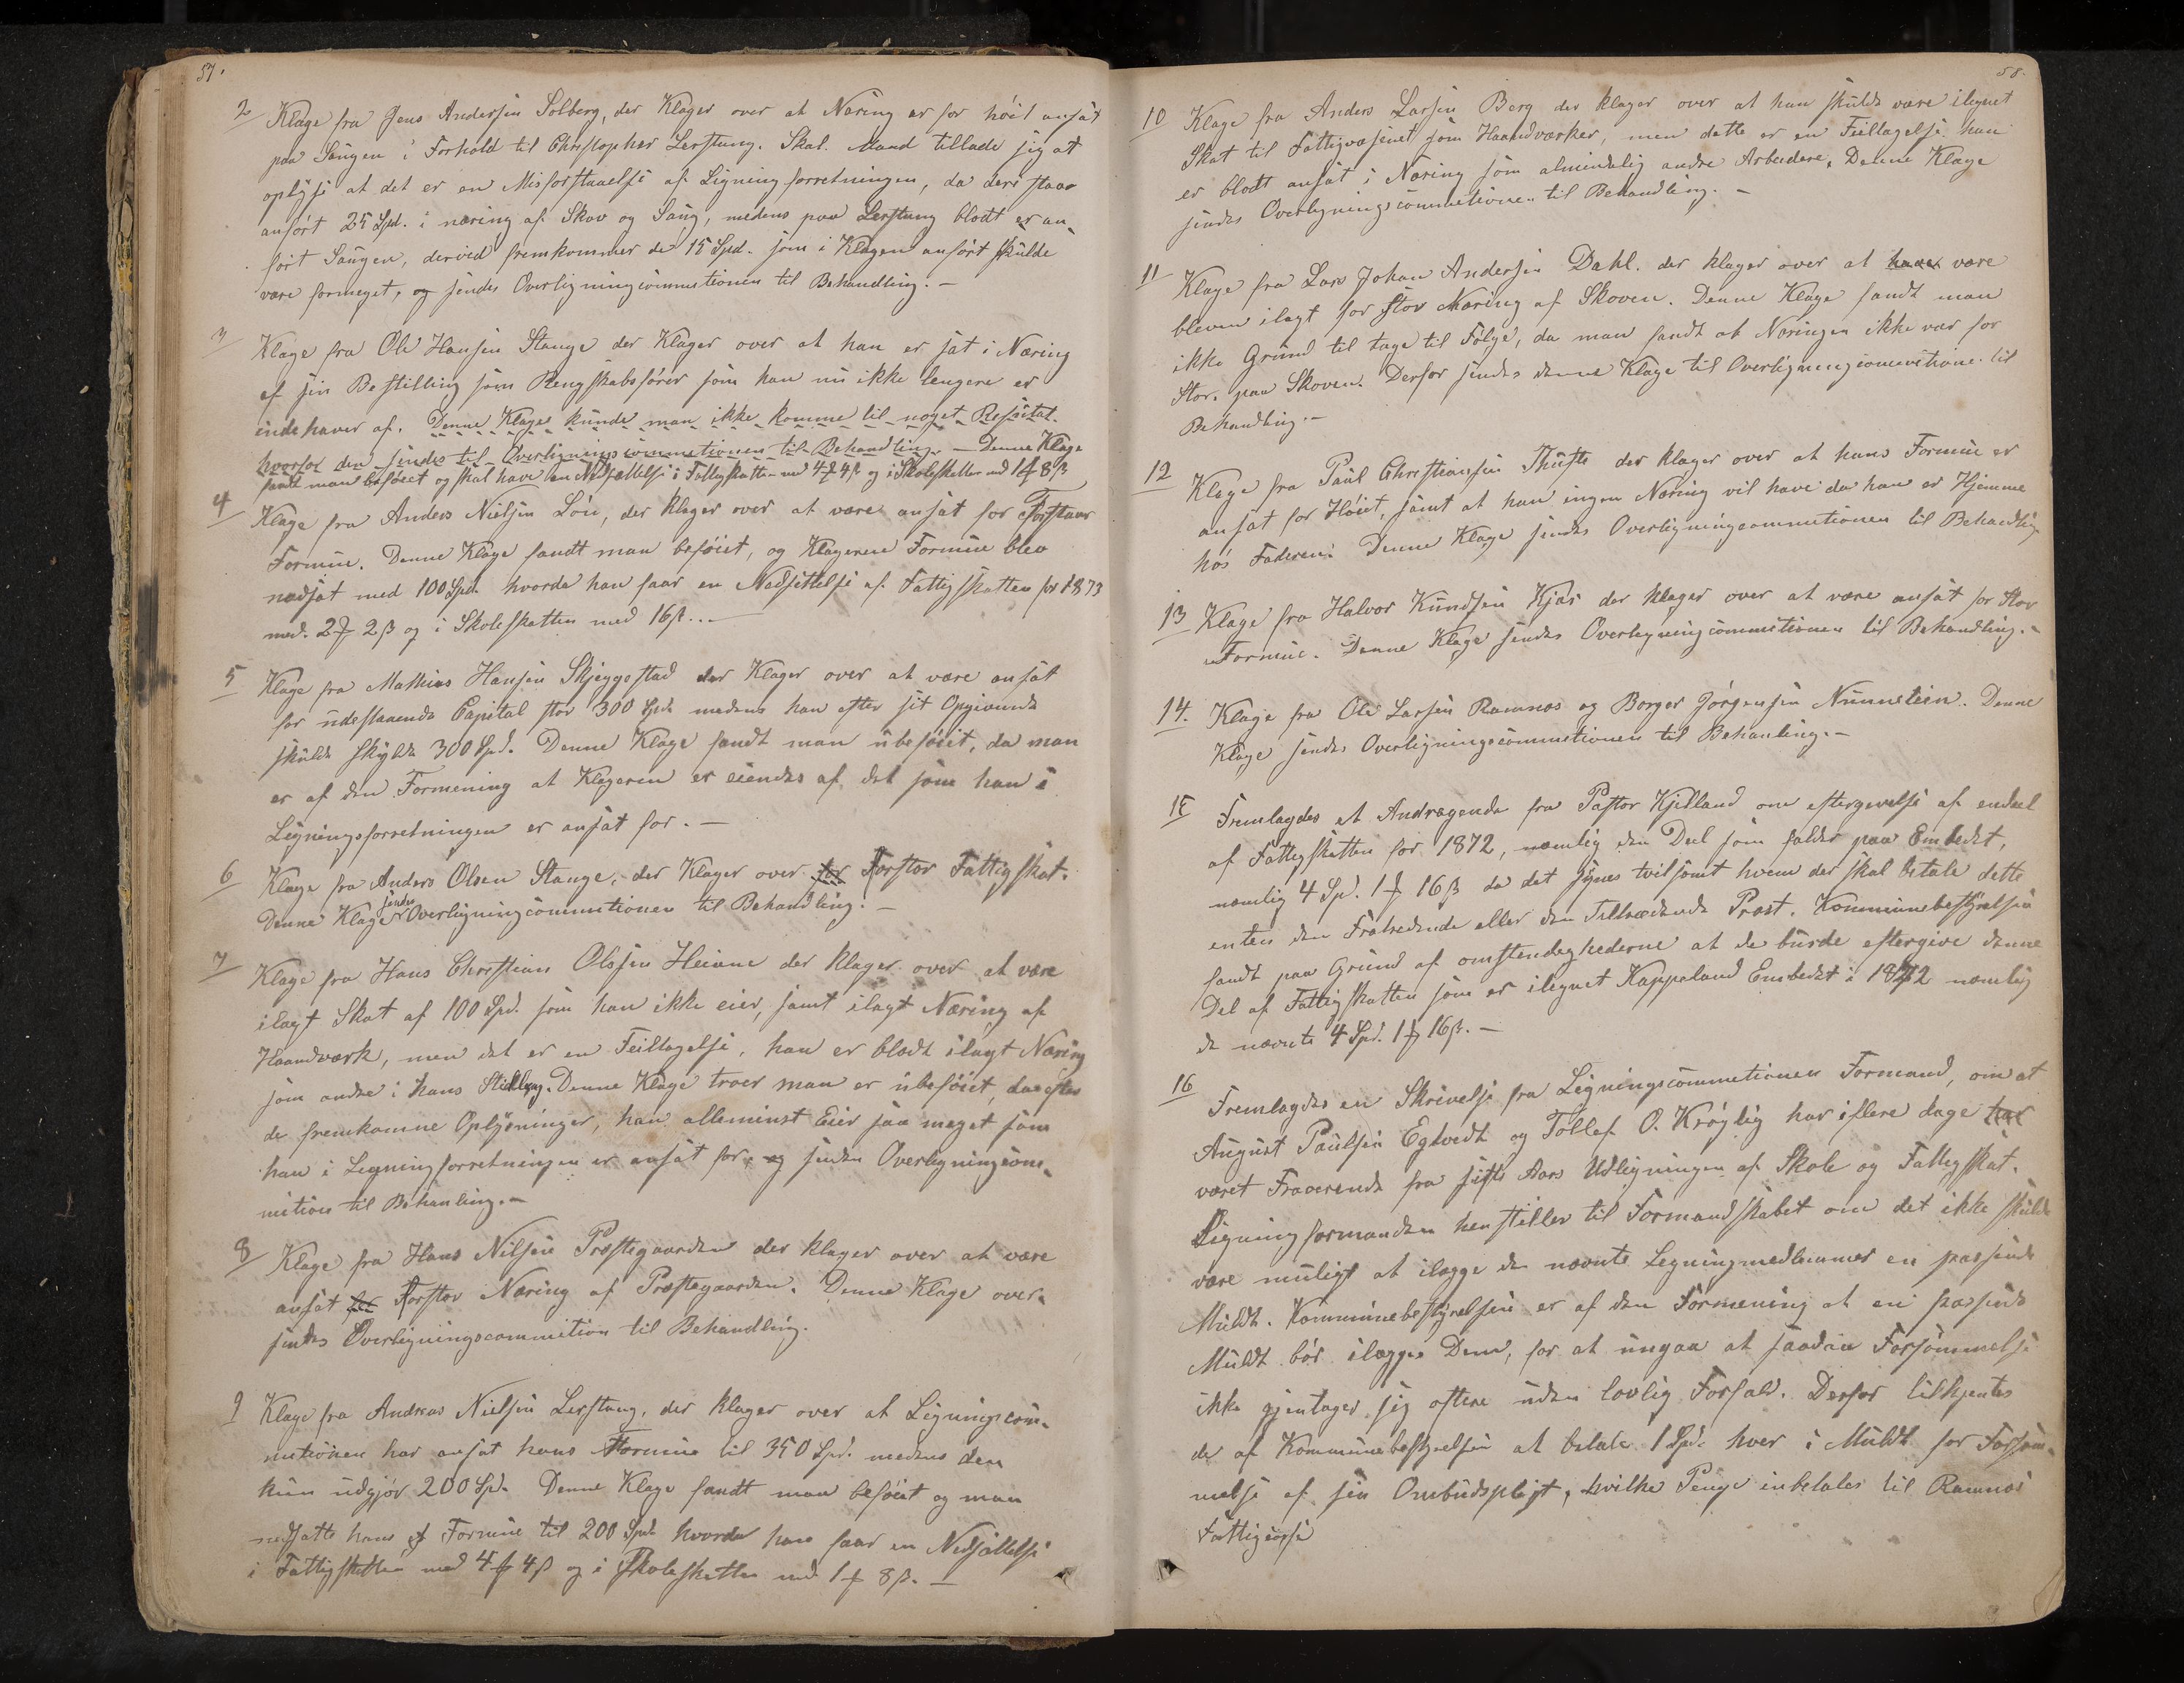 57.
2 Klage fra Jens Andersen Solberg, der Klager over at Næring er for høit ansat
paa Saugen i Forhold til Christopher Lerstang. Skal. Mand tillade sig at
oplyse at det er en Misforstaaelse af Ligningforretningen, da der staar
anført 25 Spd. i næring af Skov og Saug, medens paa Lerstang blodt er an-
ført Saugen, derved fremkommer de 15 Spd. som i Klagen anført skulde
være formeget, og sendes Overligningcommitionen til Behandling. —
3 Klage fra Ole Hansen Stange der Klager over at han er sat i Næring
af sin Bestilling som Rengskabsfører som han nu ikke lengere er
indehaver af. Denne Klage kunde man ikke komme til noget Resultat.
hvorfor den sendes til Overligningscommitionen til Behandling. — Denne Klage
fandt man beføiet og skal have en Nedsættelse i Fattigskatten med 4 ƒ 4 ß og i Skoleskatten med 1 ƒ 8 ß
4 Klage fra Anders Nielsen Löie, der klager over at være ansat for Forstaar
Formue. Denne Klage fandt man beføiet, og Klagerens Formue blev
nedsat med 100 Spd. hvorda han faar en Nedsettelse af Fattigskatten for 1873
med. 2 ƒ 2 ß og i Skoleskatten med 16 ß. —
5 Klage fra Mathias Hansen Skjeggestad der Klager over at være ansat
for udestaaende Capital stor 300 Spd. medens han efter sit Opgivende
skulde skylde 300 Spd. Denne Klage fandt man ubeføiet, da man
er af den Formening at Klageren er eiendes af det som han i
Ligningsforretningen er ansat for. —
6 Klage fra Anders Olsen Stange, der Klager over for Forstor Fattigskat.
Denne Klage sendes Overligningcommitionen til Behandling. —
7 Klage fra Hans Christian Olssen Heiane der klager over at være
ilagt Skat af 100 Spd. som han ikke eier, samt ilagt Næring af
Haandværk, men det er en Feiltagelse, han er blodt ilagt Næring
som andre i hans Stilling. Denne Klage troer man er ubeføiet, da efter
de fremkomne Oplysninger, han alleminst Eier saa meget som
han i Legningforretningen er ansat for, og sendes Overligningcom-
mition til Behanling. —
8 Klage fra Hans Nilsen Præstegaarden der klager over at være
ansat for Forstor Næring af Præstegaarden. Denne Klage over-
sendes Overligningscommition til Behandling.
9 Klage fra Andreas Nielsen Lerstang, der klager over at Ligningscom-
mitionen har ansat hans Formue til 350 Spd. medens den
kun udgjør 200 Spd. Denne Klage fandt man beføiet og man
nedsatte hans Formue til 200 Spd. hvorda han faar en Nedsættelse
i Fattigskatten med 4 ƒ 4 ß og i Skoleskatten med 1 ƒ 8 ß. —
58.
10 Klage fra Anders Larsen Berg der klager over at han skulde være ilignet
Skat til Fattigvæsenet som Haandværker, men dette er en Feiltagelse han
er blodt ansat i Næring som almindelig andre Arbeidere. Denne Klage
sendes Overligningscommitionen til Behandling. —
11 Klage fra Lars Johan Andersen Dahl. der klager over at haver være
bleven ilagt for stor Næring af Skoven. Denne Klage fandt man
ikke Grund til tage til Følge, da man fandt at Næringen ikke var for
Stor. paa Skoven. Derfor sendes denne Klage til Overligningcommitione til
Behandling. —
12 Klage fra Paul Christiansen Thufte der klager over at hans Formue er
ansat for Høiet, samt at han ingen Næring vil have da han er Hjemme
hos Faderen. Denne Klage sendes Overligningcommitionen til Behandling
13 Klage fra Halvor Knudsen Kjær der klager over at være ansat for Stor
Formue. Denne Klage sendes Overligningcommitionen til Behandling. —
14. Klage fra Ole Larsen Ramnæs og Borger Jørgensen Nunnstein. Denne
Klage sendes Overligningscommitionen til Behanling. —
15 Fremlagdes et Andragende fra Pastor Kjelland om eftergivelse af endeel
af Fattigskatten for 1872, nemlig den Deel som falder paa Embedet,
nemlig 4 Spd. 1 ƒ 16 ß da det synes tvilsomt hvem der skal betale dette
enten den Fratredende eller den Tiltrædende Præst. Kommunebestyrelsen
fandt paa Grund af omstendeghederne at de burde eftergive denne
Del af Fattigskatten som er ilignet Kappeland Embedet i 1872 nemlig
de nævnte 4 Spd. 1 ƒ 16 ß. —
16 Fremlagdes en Skrivelse fra Ligningscommitionen Formand, om at
August Paulsen Egtvedt og Tollef O. Krøglig har iflere dage har
været Fraverende fra sitste Aars Udligningen af Skole og Fattigskat.
Ligningformanden henstiller til Formandskabet om det ikke skulde
være muligt at ilægge de nævnte Legningmedlemmer en passende
Muldt. Kommunebestyrelsen er af den Formening at en passende
Muldt bør ilægges Dem, for at ungaa at saadan Forsømmelse
ikke gjentager sig oftere uden lovlig Forfald. Derfor tilkjentes
de af Kommunebestyrelsen at betale 1 Spd. hver i Muldt for Forsøm-
melse af sin Ombudspligt, hvilke Penge inbetales til Ramnæs
Fattigcasse